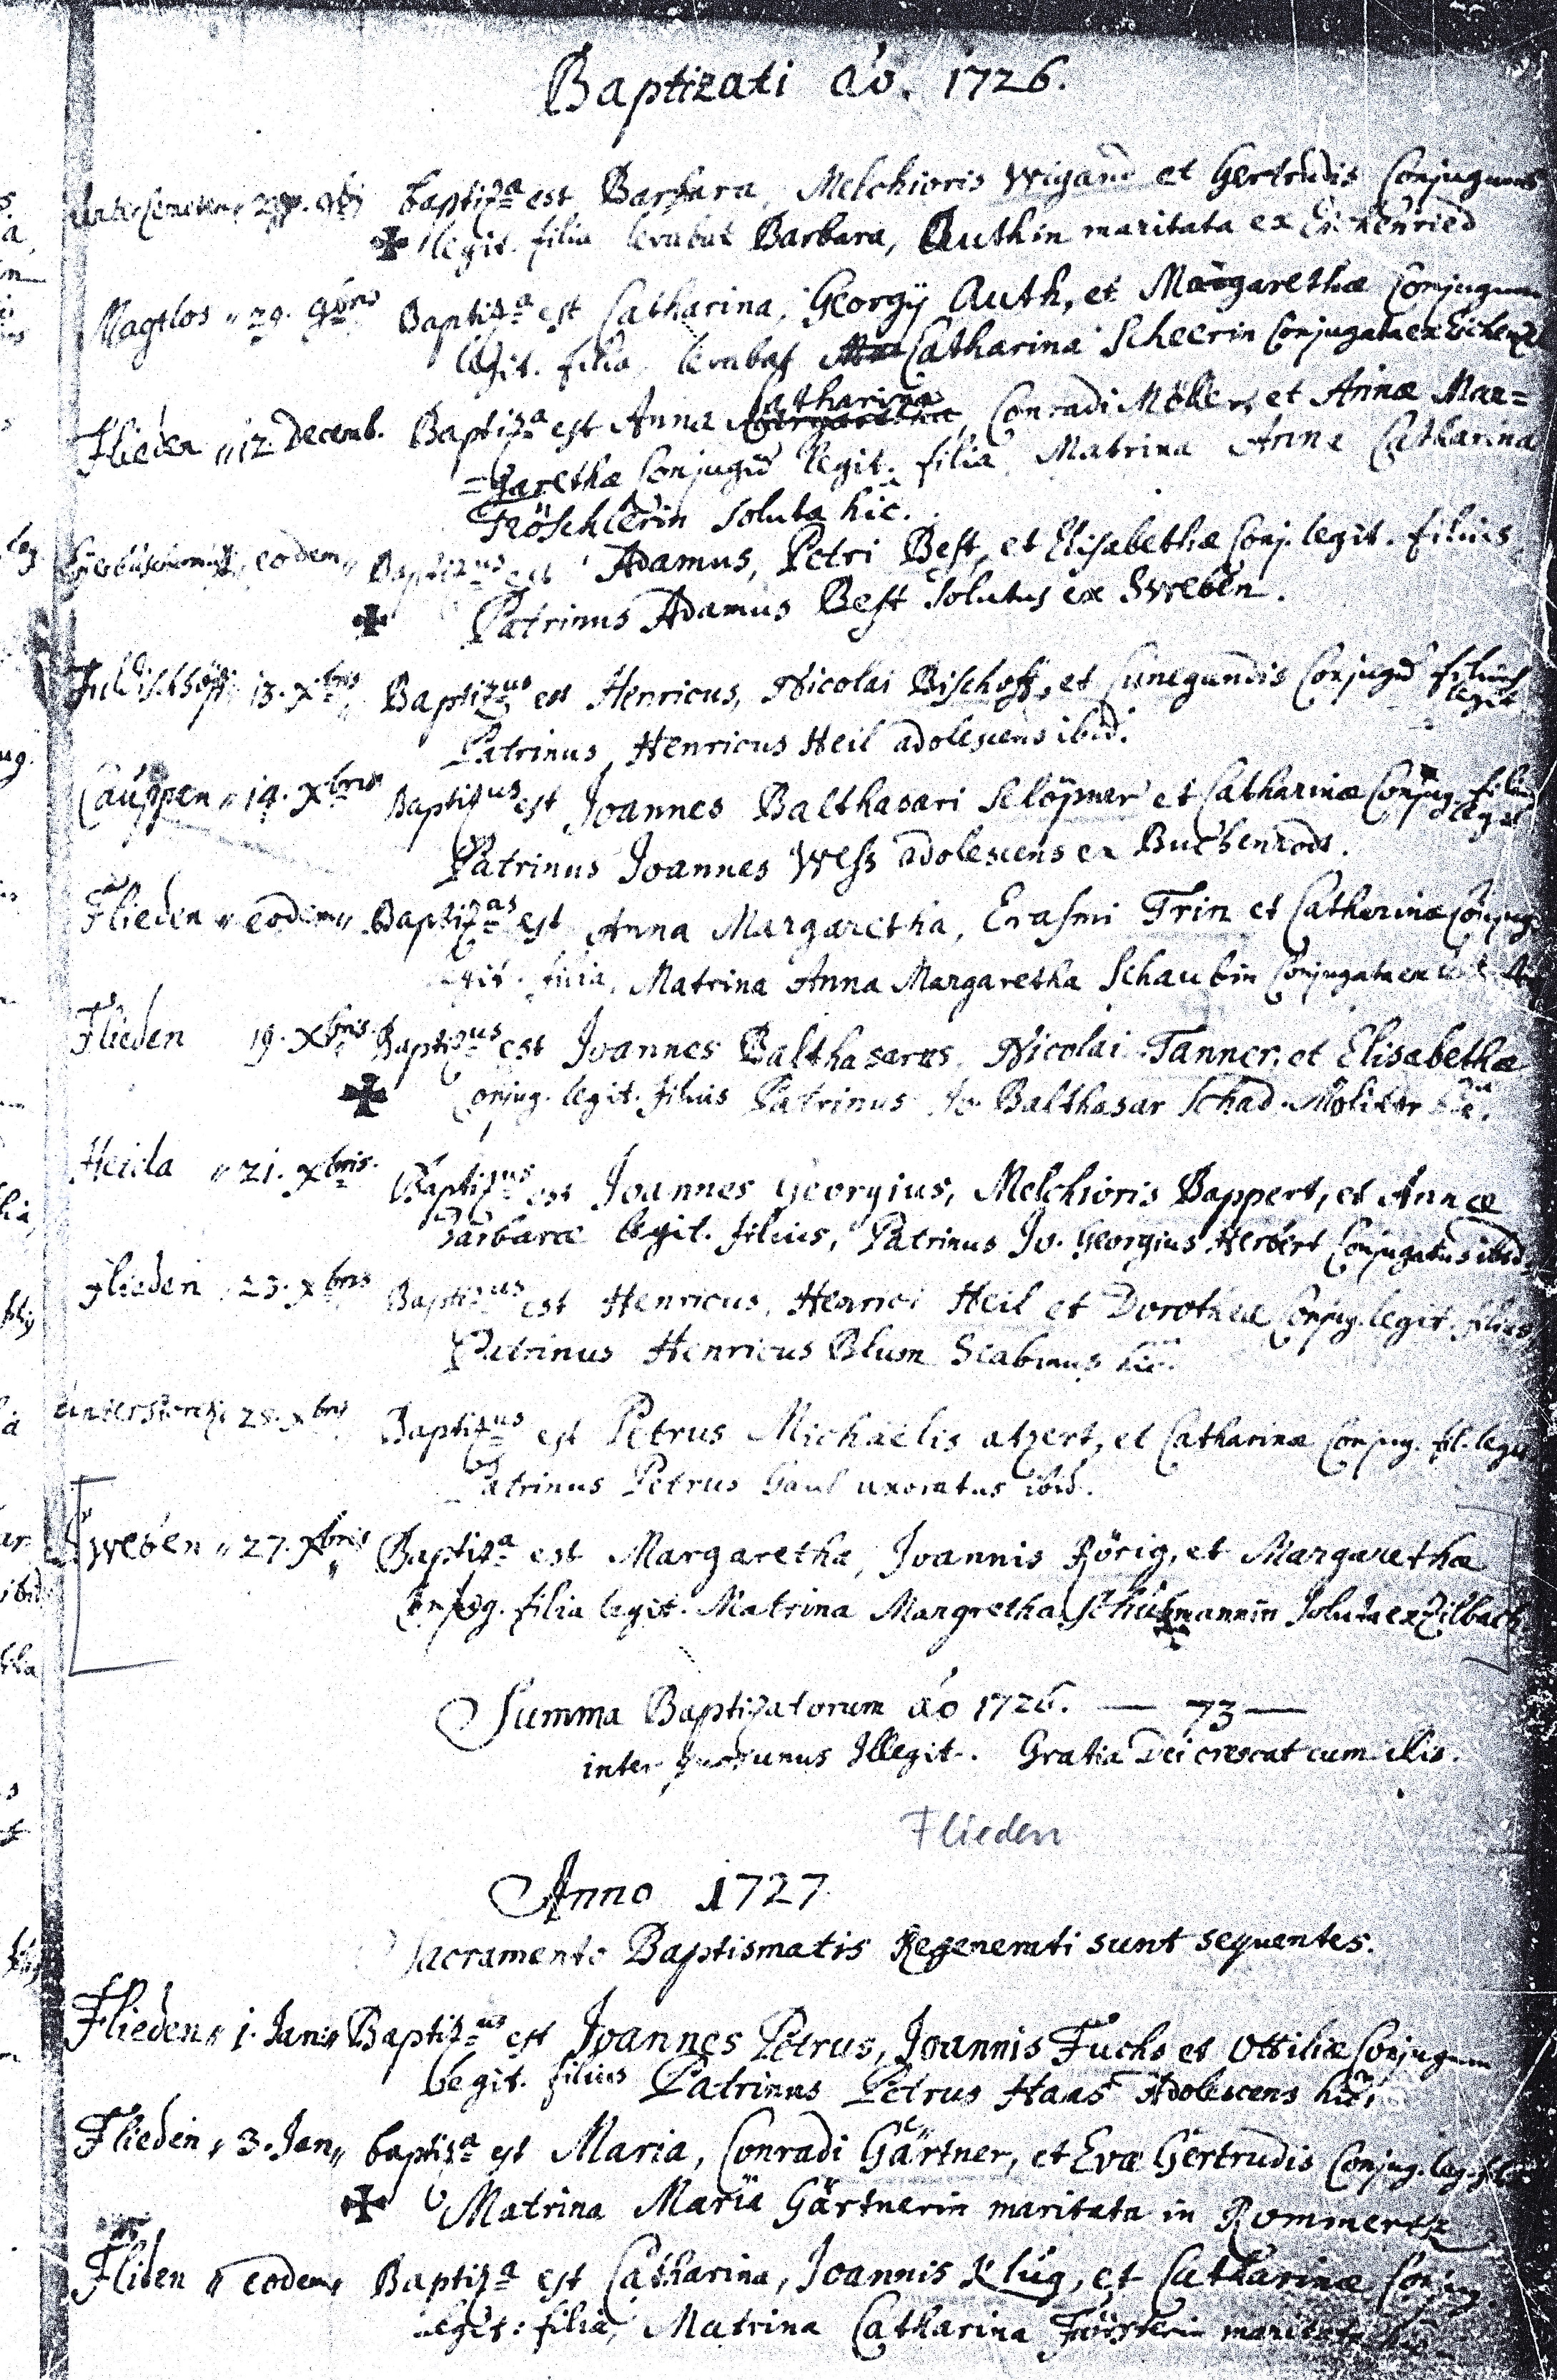 Baptizati aô. 1726.
baptiz.a est Barbara, Melchioris Wigand et Gertrudis Conjugum
legit. filia levabat Barbara, Authin maritata ex Eichenried
Magtlos 29. 9bris Baptiz.a est Catharina, Georgÿ Auth, et Margarethæ Conjugum
legit. filia levabat Catharina Scheerin Conjugata ex
Flieden 12. Decemb. Baptiz.a est Anna Catharina, Conradi Möller, et Annæ Mar=
=garethæ Conjugũ legit. filia Matrina Anna Catharina
Fröschlerin soluta hic.
eodem Baptiz.us est Adamus, Petri Best, et Elisabethæ Conj. legit. filius
Patrinus Adamus Best solutus ex Sweben.
13. Xbris Baptiz.us est Henricus, Nicolai Bischoff, et Cunegundis Conjugũ filius legit.
Patrinus Henricus Heil adolescens ibid.
14. Xbris Baptiz.us est Joannes Balthasari et Catharinæ Conjug. filius legit
Patrinus Joannes Weß adolescens ex Buchenrodt.
Flieden eodem Baptiz.as est Anna Margaretha, Erasmi Trin et Catharinæ Conjug.
legit. filia, Matrina Anna Margaretha Schaubin Conjugata ex
Flieden 19. Xbris. Baptiz.us est Joannes Balthasarus, Nicolai Tanner, et Elisabethæ
Conjug. legit. filius Patrinus Jo. Balthasar Schad Molitor hic.
Heida 21. Xbris. Baptiz.us est Joannes Georgius, Melchioris Bappert, et Annæ
Barbaræ legit. filius, Patrinus Jo. Georgius Herbert Conjugatus ibid.
Flieden 23. Xbris Baptiz.us est Henricus, Henrici Heil et Dorotheæ Conjug. legit. filius
Patrinus Henricus Blum Scabinus hic.
Xbris Baptiz.us est Petrus Michaelis atzert, et Catharinæ Conjug. fil. legit
Patrinus Petrus Gaul uxoratus ibid.
Sweben 27. Xbris Baptiz.a est Margaretha, Joannis Rörig, et Margarethæ
Conjug. filia legit. Matrina Margretha soluta ex Zilbach
Summa Baptizatorum aô 1726. — 73 —
inter quos unus Illegit. Gratia Dei crescat cum illis.
Flieden
Anno 1727
Sacramento Baptismatis Regenerati sunt sequentes.
Flieden 1. Jan. Baptiz.us est Joannes Petrus, Joannis Fuchs et Ottiliæ Conjugum
legit. filius Patrinus Petrus Haas Adolescens hic.
Flieden 3. Jan. baptiz.a est Maria, Conradi Gärtner, et Evæ Gertrudis Conjug. leg. filia
Matrina Maria Gärtnerin maritata in Rommertz
Fliden eodem Baptiz.a est Catharina, Joannis Klüg, et Catharinæ Conjug.
legit: filia, Matrina Catharina Försterin maritata